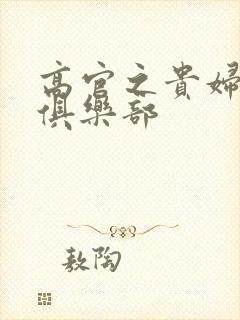 高官之貴婦
俱樂部
敖陶